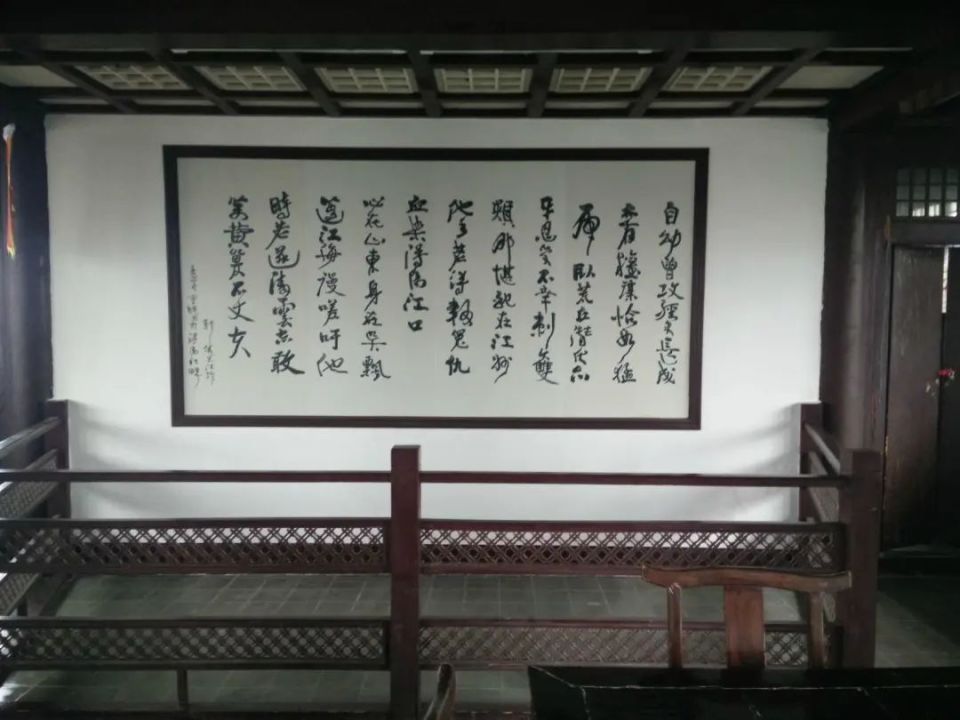 自幼曾攻經史長成
亦有權謀恰如猛
虎臥荒丘潛伏爪
牙忍受不幸刺雙
頰那堪配在江州
他年若得報冤仇
血染潯陽江口
心在山東身在吳飄
蓬江海謾嗟吁他
時若遂凌雲志敢
笑黃巢不丈夫